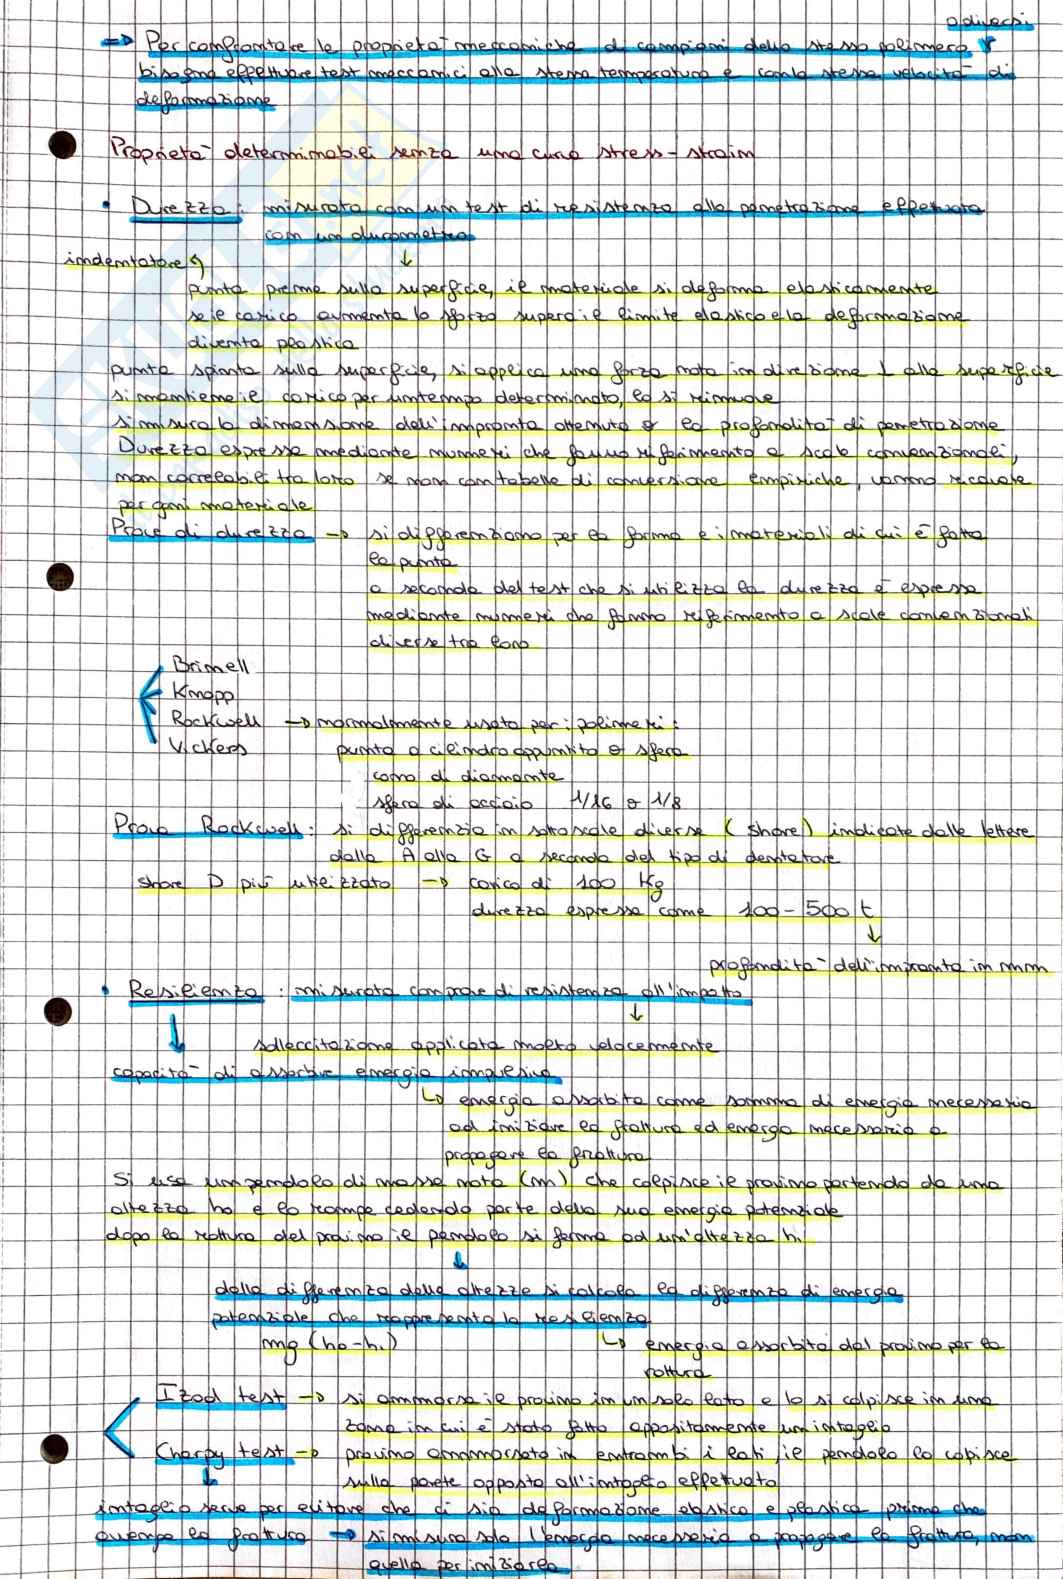 o diversi
=> Per confrontare le proprietà meccaniche di campioni dello stesso polimero
bisogna effettuare test meccanici alla stessa temperatura e con la stessa velocità di
deformazione
Proprietà determinabili senza una curva stress-strain
• Durezza: misurata con un test di resistenza alla penetrazione effettuata
con un durometro
indentatore
punta preme sulla superficie, il materiale si deforma elasticamente
se il carico aumenta lo sforzo supera il limite elastico e la deformazione
diventa plastica
punta spinta sulla superficie, si applica una forza nota in direzione ⊥ alla superficie
si mantiene il carico per un tempo determinato, lo si rimuove
si misura la dimensione dell'impronta ottenuta o la profondità di penetrazione
Durezza espressa mediante numeri che fanno riferimento a scale convenzionali,
non correlabili tra loro se non con tabelle di conversione empiriche, vanno ricavate
per ogni materiale
Prove di durezza → si differenziano per la forma e i materiali di cui è fatta
la punta
a seconda del test che si utilizza la durezza è espressa
mediante numeri che fanno riferimento a scale convenzionali
diverse tra loro
Brinell
Knopp
Rockwell → normalmente usata per i polimeri:
Vickers punta a cilindro appuntito o sfera
cono di diamante
sfera di acciaio 1/16 o 1/8
Prova Rockwell: si differenzia in sottoscale diverse (shore) indicate dalle lettere
dalla A alla G a seconda del tipo di dentatore
shore D più utilizzato → carico di 100 Kg
durezza espressa come 100-500 t
↓
profondità dell'impronta in mm
• Resilienza: misurata con prove di resistenza all'impatto
↓
sollecitazione applicata molto velocemente
capacità di assorbire energia impulsiva
↳ energia assorbita come somma di energia necessaria
ad iniziare la frattura ed energia necessaria a
propagare la frattura
Si usa un pendolo di massa nota (m) che colpisce il provino partendo da una
altezza h0 e lo rompe cedendo parte della sua energia potenziale
dopo la rottura del provino il pendolo si ferma ad un'altezza h1
↓
dalla differenza delle altezze si calcola la differenza di energia
potenziale che rappresenta la resilienza
mg (h0-h1) ↳ energia assorbita dal provino per la
rottura
Izod test → si ammorsa il provino in un solo lato e lo si colpisce in una
zona in cui è stato fatto appositamente un intaglio
Charpy test → provino ammorsato in entrambi i lati, il pendolo lo colpisce
sulla parete opposta all'intaglio effettuato
intaglio serve per evitare che ci sia deformazione elastica e plastica prima che
avvenga la frattura → si misura solo l'energia necessaria a propagare la frattura, non
quella per iniziarla